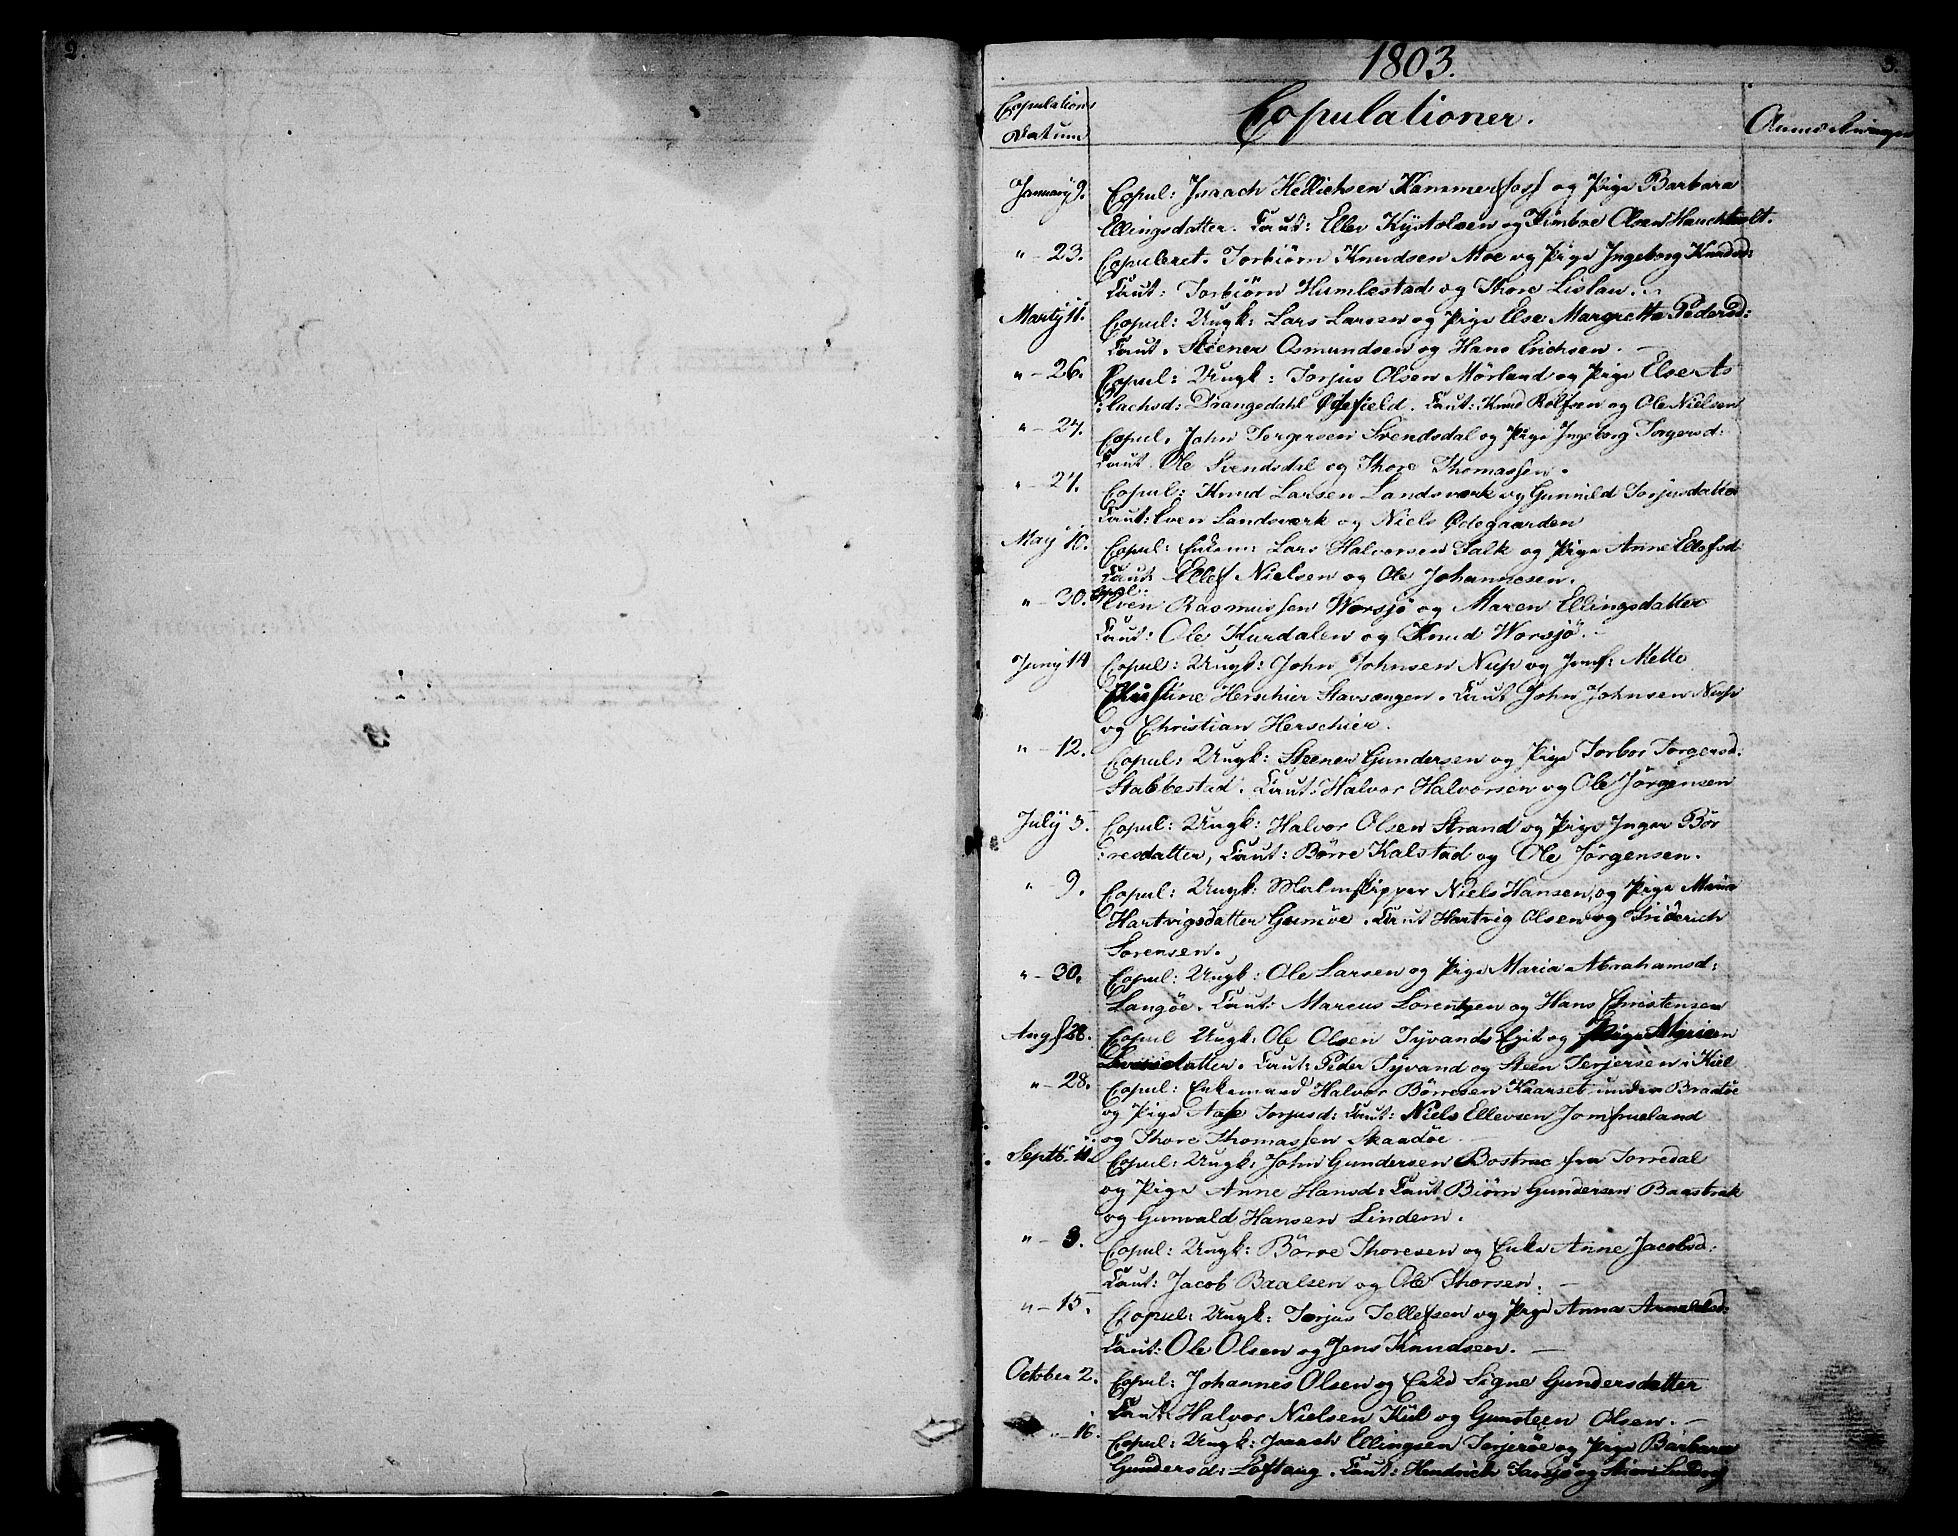 2.
1803.
3.
Copulations
Datum
Copulationer.
Anmerkninger
January 9. Copul: Isaach Kammerfoss og Pige Barbara
Ellingsdatter. Caut: Ellev og Olsen
" – 23. Copuleret. Torbiörn Knudsen Moe og Pige Ingeborg Knudsd:
Caut: Torbiörn Humlestad og Thore Lislau.
Martÿ 11. Copul: Ungk: Lars Larsen og Pige Else Margrethe Pedersd:
Caut. Steener Osmundsen og Hans Erichsen. –
" – 26. Copul: Ungk: Torjus Olsen Mörland og Pige Else As
:lachsd: Drangedahl. Caut: Knud Rolfsen og Ole Nielsen
" – 27. Copul. John Torgersen Svendsdal og Pige Ingeborg Torgersd:
Caut. Ole Svendsdal og Thore Thomassen.
" – 27. Copul: Knud Larsen Landsværk og Gunnild Torjusdatter
Caut: Even Landsværk og Niels Ödegaarden
Maÿ 10. Copul: Enkem: Lars Halvorsen Falk og Pige Anne Ellefsd:
Caut: Ellef Nielsen og Ole Johannesen.
" – 30. Copul: Even Rasmussen Worsjö og Maren Ellingsdatter
Caut: Ole Kurdalen og Knud Worsjö. –
Junÿ 14 Copul: Ungk: John Johnsen og Jomf: Mette
Kristine Herschier Stavsængen. Caut John Johnsen
og Christian Herschier.
" – 12. Copul: Ungk: Steener Gundersen og Pige Torbor Torgersd:
Stabbestad. Caut: Halvor Halvorsen og Ole Jörgensen
Julÿ 5. Copul: Ungk: Halvor Olsen Strand og Pige Inger Bör
:resdatter, Caut: Börre Kalstad og Ole Jörgensen.
" – 9. Copul: Ungk: Niels Hansen, og Pige Maria
Hartvigsdatter Gumöe. Caut Hartvig Olsen og Friderich
Sorensen.
" – 30. Copul: Ungk: Ole Larsen og Pige Maria Abrahamsd:
Langöe. Caut: Marcus Lorentzen og Hans Christensen
Augs 28. Copul Ungk: Ole Olsen Tyvands Eget og Pige Maren
datter. Caut: Peder Tyvand og Steen Terjersen i Kiel
" – 28. Copul: Enkemand Halvor Börresen Kaarset under Bradöe
og Pige Aase Torjusd: Caut: Niels Ellevsen Jomfrueland
og Thore Thomassen Skaadöe
Septb. 11. Copul: Ungk: John Gundersen Bostrac fra Torredal
og Pige Anne Hansd: Caut Biörn Gundersen Baastrak
og Gunvald Hansen Lindem.
" – 8. Copul: Ungk: Börre Thoresen og Enke Anne Jacobsd:
Caut: Jacob Baalsen og Ole Thorsen. –
" – 15. Copul: Ungk: Torjus Tellefsen og Pige Anna
Caut: Ole Olsen og Jens Knudsen. –
October 2. Copul: Johannes Olsen og Enke Signe Gundersdatter
Caut: Halvor Nielsen Kiil og Gunsteen Olsen. –
" – 16. Copul: Ungk: Isaach Ellingsen Torjeröe og Pige Barbara
Gundersd: Löftaug. Caut: Hendrich og